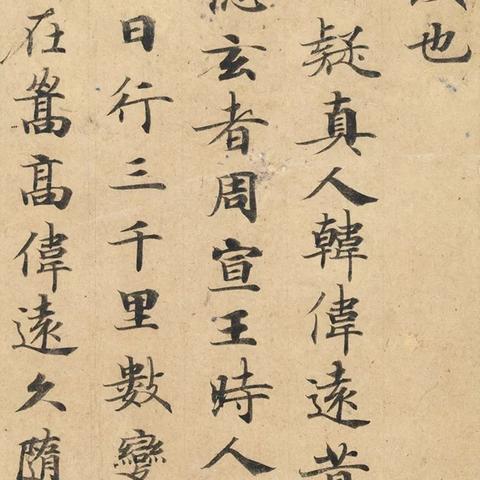 也
疑真人韓偉遠昔
玄者周宣王時人
日行三千里數變
在嵩髙偉遠久隨